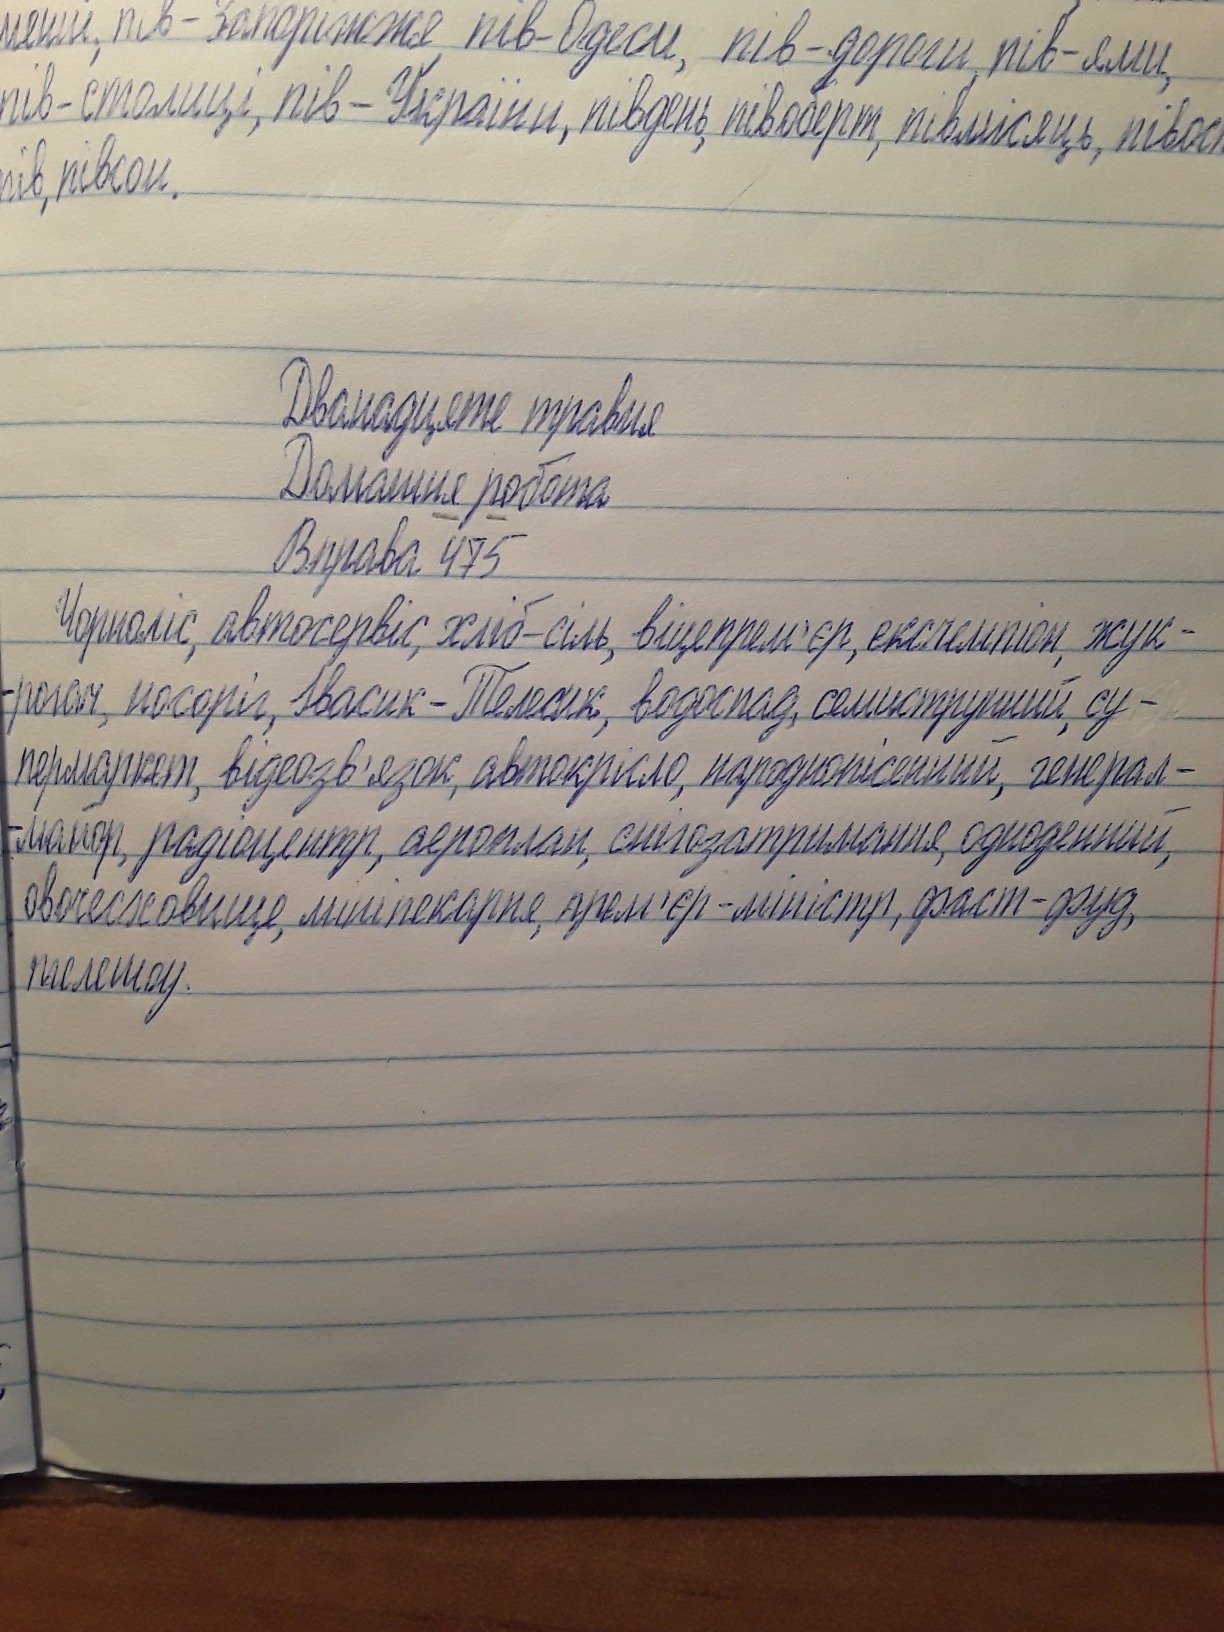 пів-Запоріжжя пів-Одеси, пів-дороги, пів-ями,
пів-столиці, пів-України, південь, півоберт, півмісяць,
пів, півсон.
Дванадцяте травня
Домашня робота
Вправа 475
Чорноліс, автосервіс, хліб-сіль, віцепрем'єр, ексчемпіон, жук-
-рогач, носоріг, Івасик-Телесик, водоспад, семиструнний, су-
пермаркет, відеозв'язок, автокрісло, народнопісенний, генерал-
-майор, радіоцентр, аероплан, снігозатримання, одноденний,
овочесховище, мініпекарня, прем'єр-міністр, фаст-фуд,
телешоу.